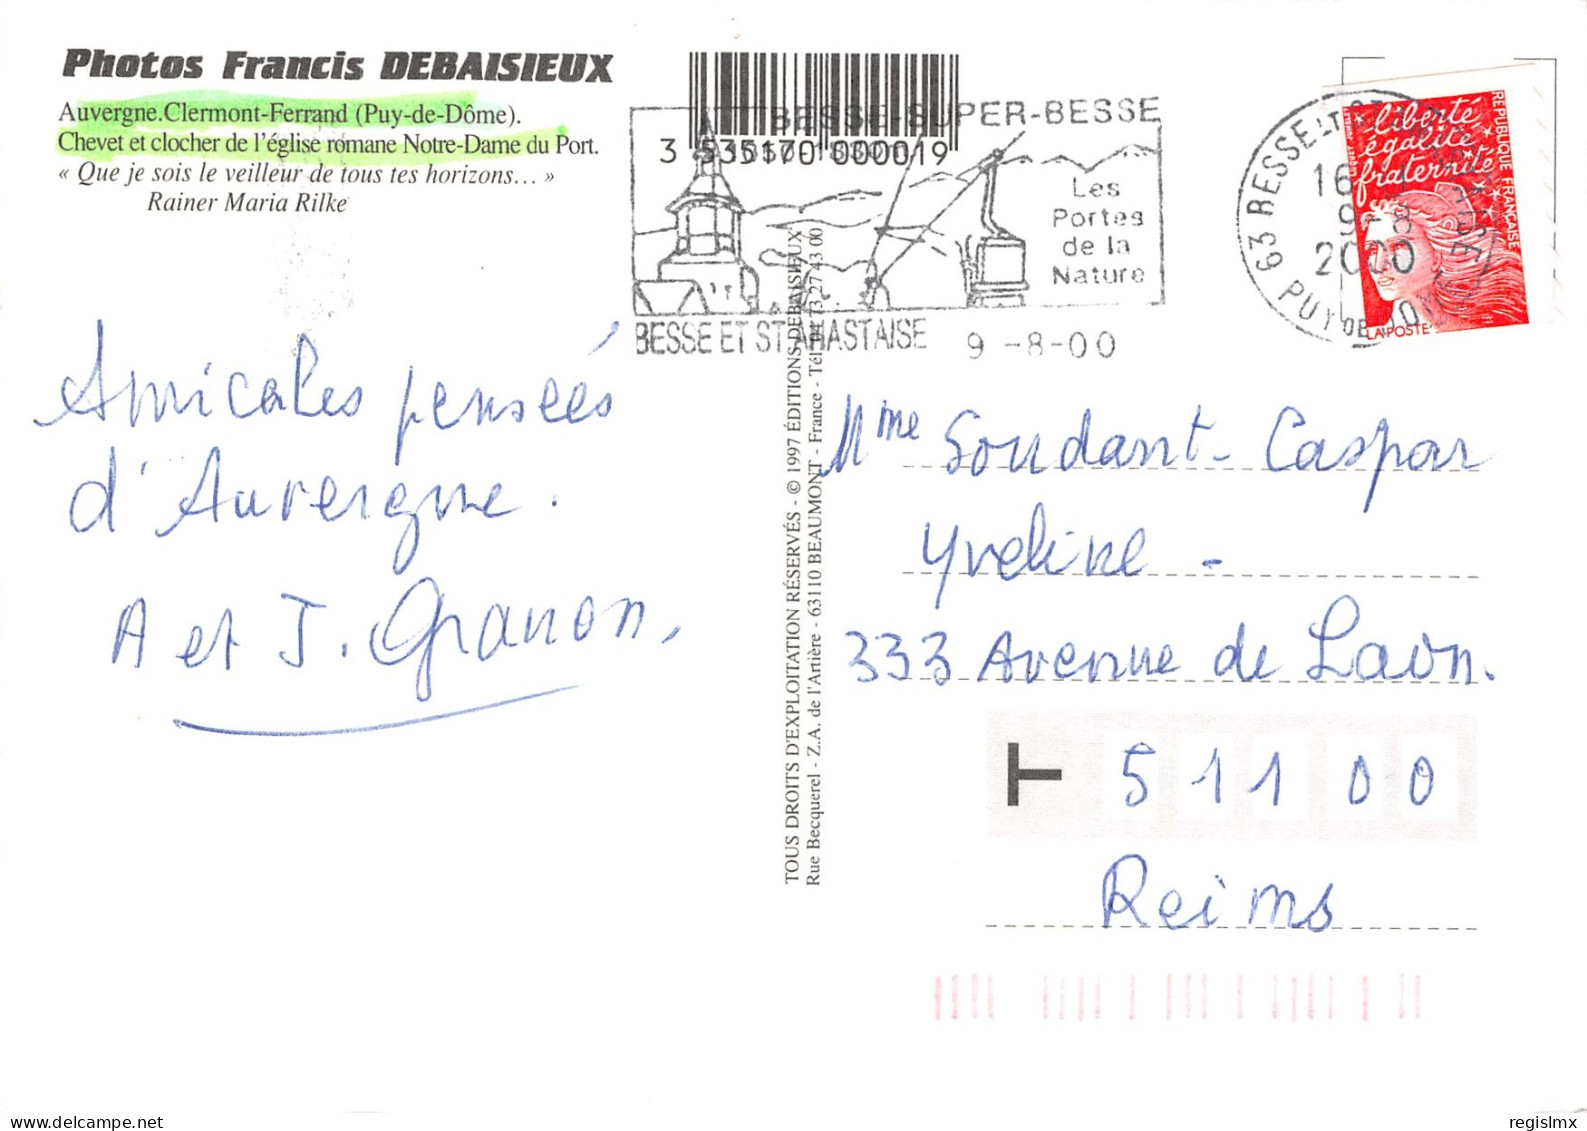 Photos Francis DEBAISIEUX
Auvergne.Clermont-Ferrand (Puy-de-Dôme).
Chevet et clocher de l'église romane Notre-Dame du Port.
« Que je sois le veilleur de tous tes horizons... »
Rainer Maria Rilke
BESSE-SUPER-BESSE
3 535170 000019
Les
Portes
de la
Nature
BESSE ET ST ANASTAISE
9 -8-00
63 BESSE
16
9-8
2000
PUY DE DOME
liberté
égalité
fraternité
REPUBLIQUE FRANÇAISE
LA POSTE
Amicales pensées
d'Auvergne.
A et J. Granon,
TOUS DROITS D'EXPLOITATION RÉSERVÉS - © 1997 ÉDITIONS DEBAISIEUX
Rue Becquerel - Z.A. de l'Artière - 63110 BEAUMONT - France - Tél. 04 73 27 43 00
Mme Soudant-Caspar
Yveline -
333 Avenue de Laon.
51100
Reims
regislmx